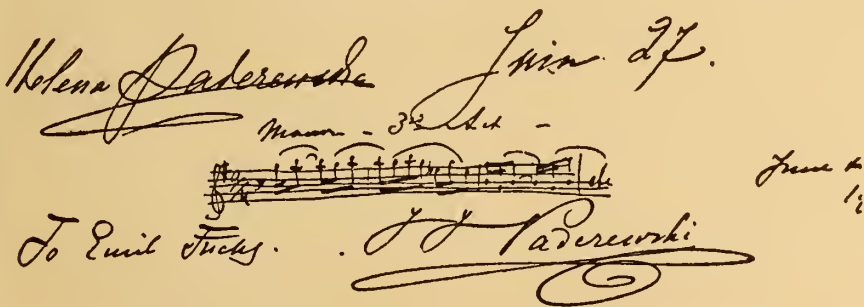 Helena Paderewska Juin 27.
Manru - 3rd Act -
June
To Emil Fuchs. I J Paderewski